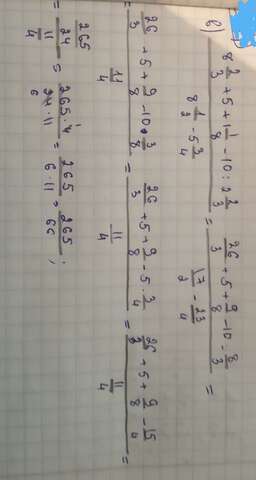 в) (8 2/3 + 5 + 1 1/8 - 10 : 2 2/3) / (8 1/2 - 5 3/4) = (26/3 + 5 + 9/8 - 10 : 8/3) / (17/2 - 23/4) =
= (26/3 + 5 + 9/8 - 10 · 3/8) / (11/4) = (26/3 + 5 + 9/8 - 5 · 3/4) / (11/4) = (26/3 + 5 + 9/8 - 15/4) / (11/4) =
= (265/24) / (11/4) = (265 · 4) / (24 · 11) = 265 / (6 · 11) = 265/66;